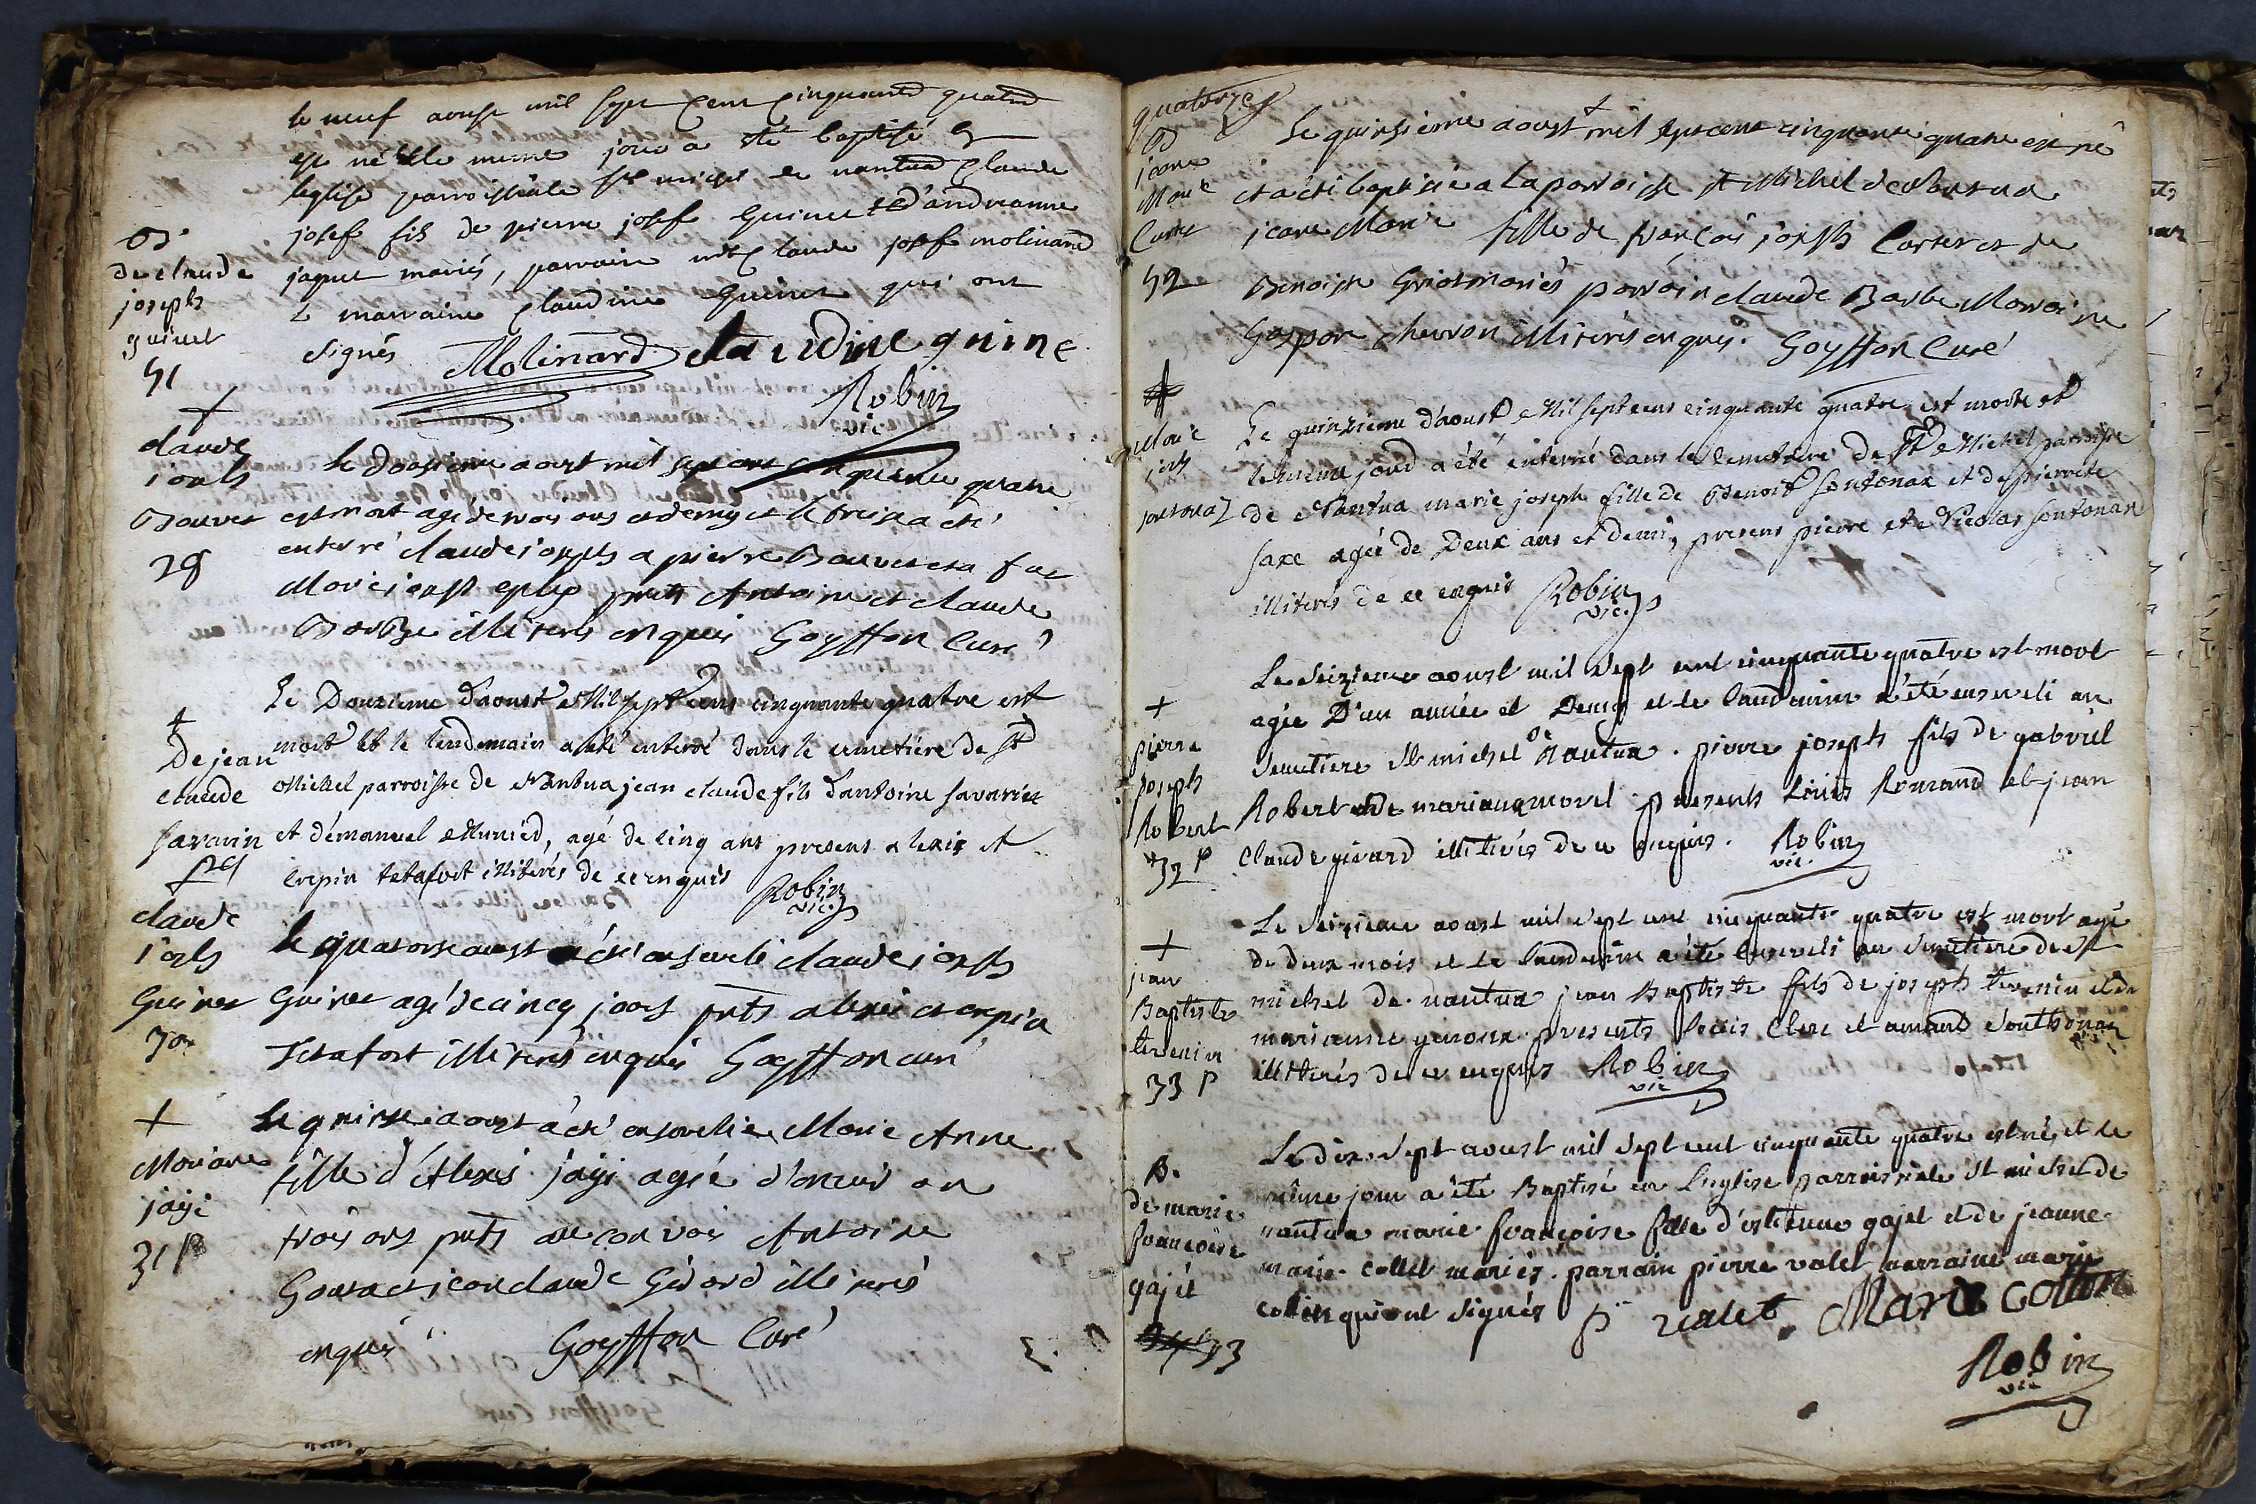 le neuf aoust mil sept cent cinquante quatre
est né & le meme jour a été baptisé en
leglise parroissiale st michel de nantua claude
josef fils de pierre josef Guinet & d'andreanne
japuet mariés, parrain mre claude josef molinard
& marraine claudine Guinet qui ont
signés Molinard claudine guine
Robin
vic
B.
de claude
joseph
guinet
51
+
claude
iosph
Bouvet
28
le dousieme aoust mil sept cent cinquante quatre
est mort agé de trois ans et demy et le treise a été
enterré claude iosph a pierre Bouvet et a fue
Marie iosph
prets Antoine et claude
Barbe illiterés enquis Goyffon Curé
+
De jean
claude
Savarin
29
Le Douzieme d'aoust Mil sept cens cinquante quatre est
mort et le lendemain a eté enterré dans le cemetiére de St
Michel parroisse de Nantua jean claude fils d'antoine Savarin
et d'émanuel Munied, agé de cinq ans presens alexis et
crepin tetafort illiterés de ce enquis Robin
vic.
claude
iosph
Guinet
30
le quatorse aoust a été ensevéli claude iosph
Guinet agé de cincq jours prets alexis et crepin
Tetafort illiterés enquis Goyffon curé
+
Mariane
jayi
31 P
Le quinse aoust a été ensevelie Marie Anne
fille d'Alexis jayi agée d'environ
trois ans prets au convoi Antoine
et jean claude Girard illiterés
enquis Goyffon Curé
quatorze
B
jeane
Marie
Carter
52
Le quinsieme aoust mil sept cent cinquante quatre est né
et a été baptisée a la parroisse st Michel de Nantua
jeane Marie fille de françois joseph Carter et de
Benoiste Griot mariés parrain claude Barbe Marraine
Gaspare chevron illiterés enquis. Goyffon Curé
+
Marie
iosph
sontonaz
Le quinzieme d'aoust Mil sept cens cinquante quatre est morte et
le meme jour a été enterré dans le cemetiere de St Michel parroisse
de Nantua marie joseph fille de Benoit sontonax et de pierrette
saxe agée de Deux ans et demi, presens pierre et Nicolas sontonax
illiterés de ce enquis Robin
vic.
+
pierre
joseph
Robert
32 P
Le seizieme aoust mil sept cent cinquante quatre est mort
agée D'un année et Demy et le landemain a été enseveli au
semetiere st michel de Nantua. pierre joseph fils de gabriel
Robert et de marianne morel presents Louis Romand et jean
Claude girard illiterés de ce enquis. Robin
vic.
+
jean
Baptiste
tevenin
33 P
Le Seizieme aoust mil sept cent cinquante quatre est mort agé
de deux mois et le landemain a été enseveli au semetiere de st
michel de nantua jean Baptiste fils de joseph tevenin et de
marianne giroux presents louis Clerc et amand sonthonax
illiterés de ce enquis Robin
vic
B.
de marie
francoise
gajet
53
Le dix sept aoust mil sept cent cinquante quatre est né, et le
même jour a été Baptisé en Leglise parroissiale st michel de
nantua marie francoise fille d'estienne gajet et de jeanne
marie collet mariés. parrain pierre valet marraine marie
collin qui ont signés p valet Marie Collin
Robin
vic